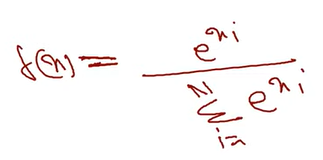 f(x) = e^{x_i} / \sum_{i=}^{N} e^{x_i}